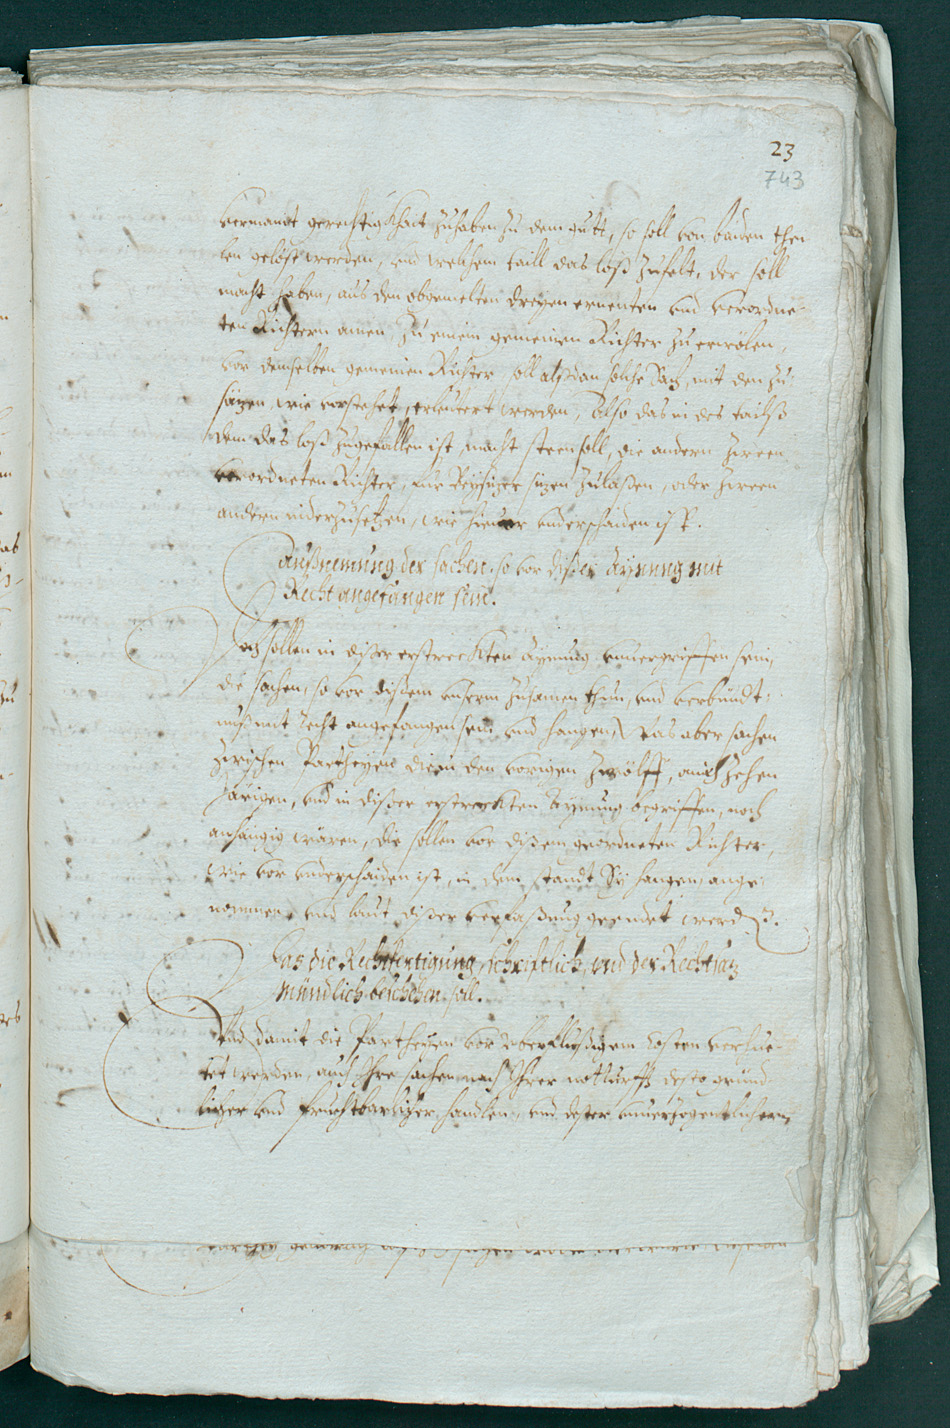 23
743
vermaint gerechtigkhait zuhaben zu dem gutt, so soll von baiden thai-
len gelöst werden, und welchem taill das loß zufelt, der soll
macht haben, aus den obgemelten dreyen ernenten und verordne-
ten Richtern ainen, zu einem gemeinen Richter zu erwölen,
vor demselben gemeinen Richter soll alßdan solche Sach, mit den Zu-
säzen, wie vorstehet, erleutert werden, Also das in des tailß
dem das loß zugefallen ist, macht steen soll, die andern zween
verordneten Richter, für Beysizer sizen zulaßen, oder zween
andern niderzusetzen, wie hievor underschaiden ist.
Außnemung der sachen, so vor dißer Aynung mit
Recht angefangen sein.
Doch sollen in dißer erstreckten Aynung unvergriffen sein,
die sachen, so vor dißem unserm zusamen thun, und verbündt-
nuß mit recht angefangen sein und hangen, Was aber sachen
zwischen Partheyen die in den vorigen Zwölff, auch Zehen
Järigen, und in dißer erstreckten Aynung begriffen, noch
anhängig wären, die sollen vor dißem geordneten Richter,
wie vor underschaiden ist, in dem standt Sy hangen, ange-
nommen, und laut dißer verfaßung geendet werden.
Das die Rechtfertigung, schriftlich, und der Rechtsaz
mündlich beschehen soll.
Und damit die Partheyen vor überflüßigem Costen verhüe-
tet werden, auch Ihre sachen nach Ihrer notturfft desto gründ-
licher und fruchtbarlicher handlen, und dester unverzogentlichern